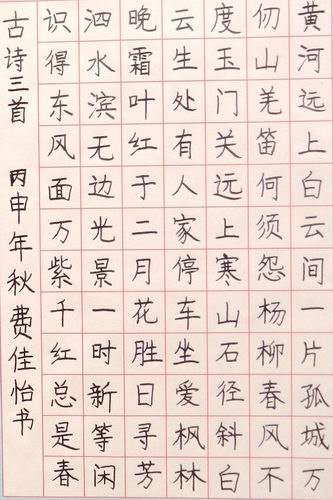 黄河远上白云间一片孤城万
仞山羌笛何须怨杨柳春风不
度玉门关远上寒山石径斜白
云生处有人家停车坐爱枫林
晚霜叶红于二月花胜日寻芳
泗水滨无边光景一时新等闲
识得东风面万紫千红总是春
古诗三首 丙申年秋费佳怡书